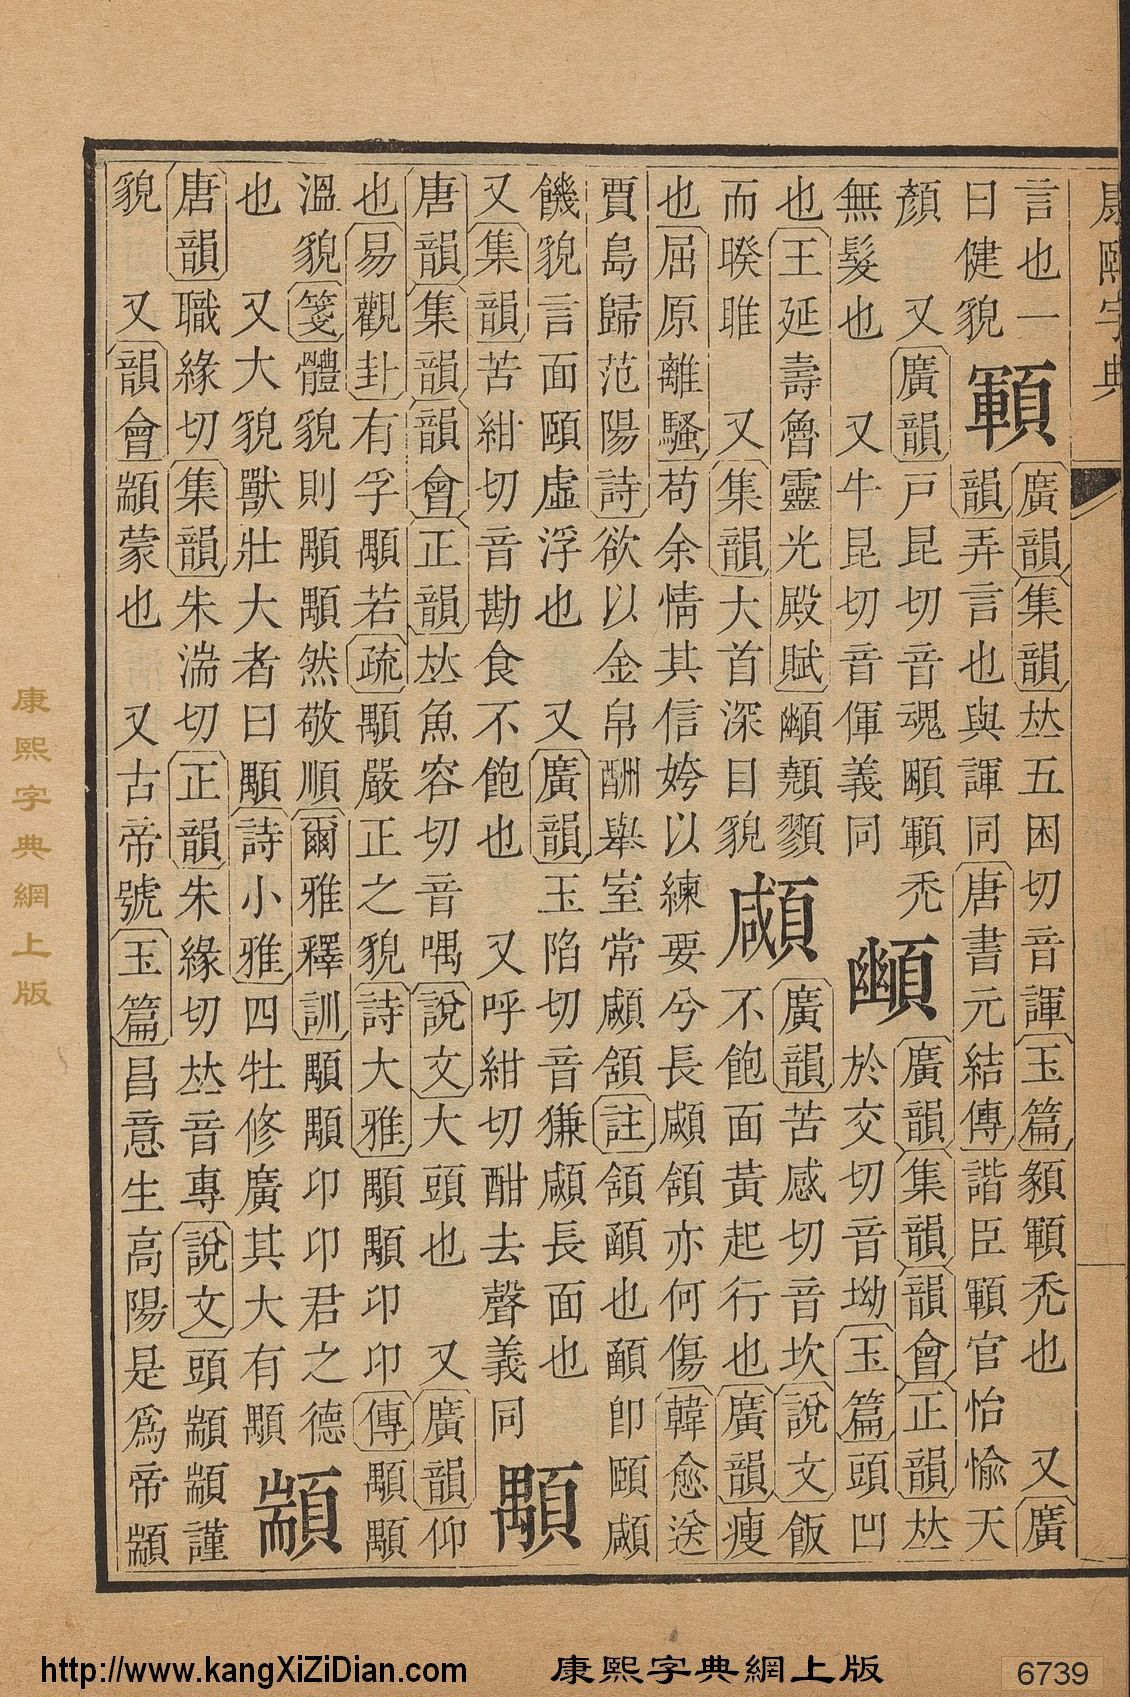 康熙字典
言也一
曰健貌
顐
廣韻集韻𠀤五困切音諢玉篇顐禿也 又廣
韻弄言也與諢同唐書元結傳諧臣顐官怡愉天
顏 又廣韻戸昆切音魂顐禿
無髮也 又牛昆切音倱義同
䫜
廣韻集韻韻會正韻𠀤
於交切音坳玉篇頭凹
也王延壽魯靈光殿賦䫜顤顟
而睽睢 又集韻大首深目貌
顑
廣韻苦感切音坎說文飯
不飽面黃起行也廣韻瘦
也屈原離騷苟余情其信姱以練要兮長顑頷亦何傷韓愈送
賈島歸范陽詩欲以金帛酬舉室常顑頷註頷顄也顄卽頤顑
饑貌言面頤虛浮也 又廣韻玉陷切音㺌顑長面也
又集韻苦紺切音勘食不飽也 又呼紺切酣去聲義同
顒
唐韻集韻韻會正韻𠀤魚容切音喁說文大頭也 又廣韻仰
也易觀卦有孚顒若疏顒嚴正之貌詩大雅顒顒卬卬傳顒顒
溫貌箋體貌則顒顒然敬順爾雅釋訓顒顒卬卬君之德
也 又大貌獸壯大者曰顒詩小雅四牡修廣其大有顒
顓
唐韻職緣切集韻朱湍切正韻朱緣切𠀤音專說文頭顓顓謹
貌 又韻會顓蒙也 又古帝號玉篇昌意生高陽是爲帝顓
康熙字典網上版
http://www.kangXiZiDian.com
康熙字典網上版
6739